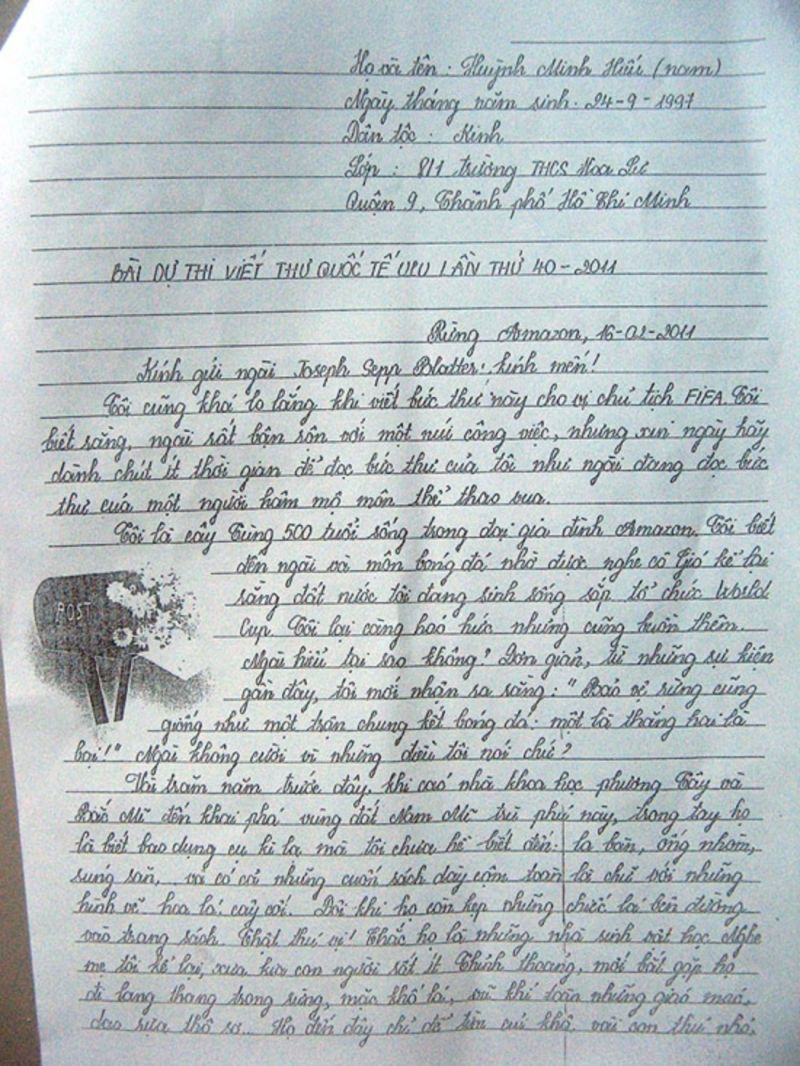 Họ và tên : Huỳnh Minh Hiếu (nam)
Ngày tháng năm sinh: 24-9-1997
Dân tộc : Kinh
Lớp : 8/1 trường THCS Hoa Lư
Quận 9, Thành phố Hồ Chí Minh
BÀI DỰ THI VIẾT THƯ QUỐC TẾ UPU LẦN THỨ 40-2011
Rừng Amazon, 16-02-2011
Kính gửi ngài Joseph Sepp Blatter kính mến!
Tôi cũng khá lo lắng khi viết bức thư này cho vị chủ tịch FIFA. Tôi
biết rằng, ngài rất bận rộn với một núi công việc, nhưng xin ngày hãy
dành chút ít thời gian để đọc bức thư của tôi như ngài đang đọc bức
thư của một người hâm mộ môn thể thao vua.
Tôi là cây Tùng 500 tuổi sống trong đại gia đình Amazon. Tôi biết
đến ngài và môn bóng đá nhờ được nghe cô Gió kể lại
rằng đất nước tôi đang sinh sống sắp tổ chức World
Cup. Tôi lại càng háo hức nhưng cũng buồn thêm.
Ngài hiểu tại sao không? Đơn giản, từ những sự kiện
POST
gần đây, tôi mới nhận ra rằng: "Bảo vệ rừng cũng
giống như một trận chung kết bóng đá: một là thắng hai là
bại!" Ngài không cười vì những điều tôi nói chứ?
Vài trăm năm trước đây, khi các nhà khoa học phương Tây và
Bắc Mĩ đến khai phá vùng đất Nam Mĩ trù phú này, trong tay họ
là biết bao dụng cụ kì lạ mà tôi chưa hề biết đến: la bàn, ống nhòm,
súng săn,... và có cả những cuốn sách dày cộm toàn là chữ với những
hình vẽ hoa lá cây cối. Đôi khi họ còn kẹp những chiếc lá bên đường
vào trang sách. Thật thú vị! Chắc họ là những nhà sinh vật học. Nghe
mẹ tôi kể lại, xưa kia con người rất ít. Thỉnh thoảng, mới bắt gặp họ
đi lang thang trong rừng, mặc khố lá, vũ khí toàn những giáo mác,
dao rựa thô sơ... Họ đến đây chỉ để tìm củi khô, vài con thú nhỏ,